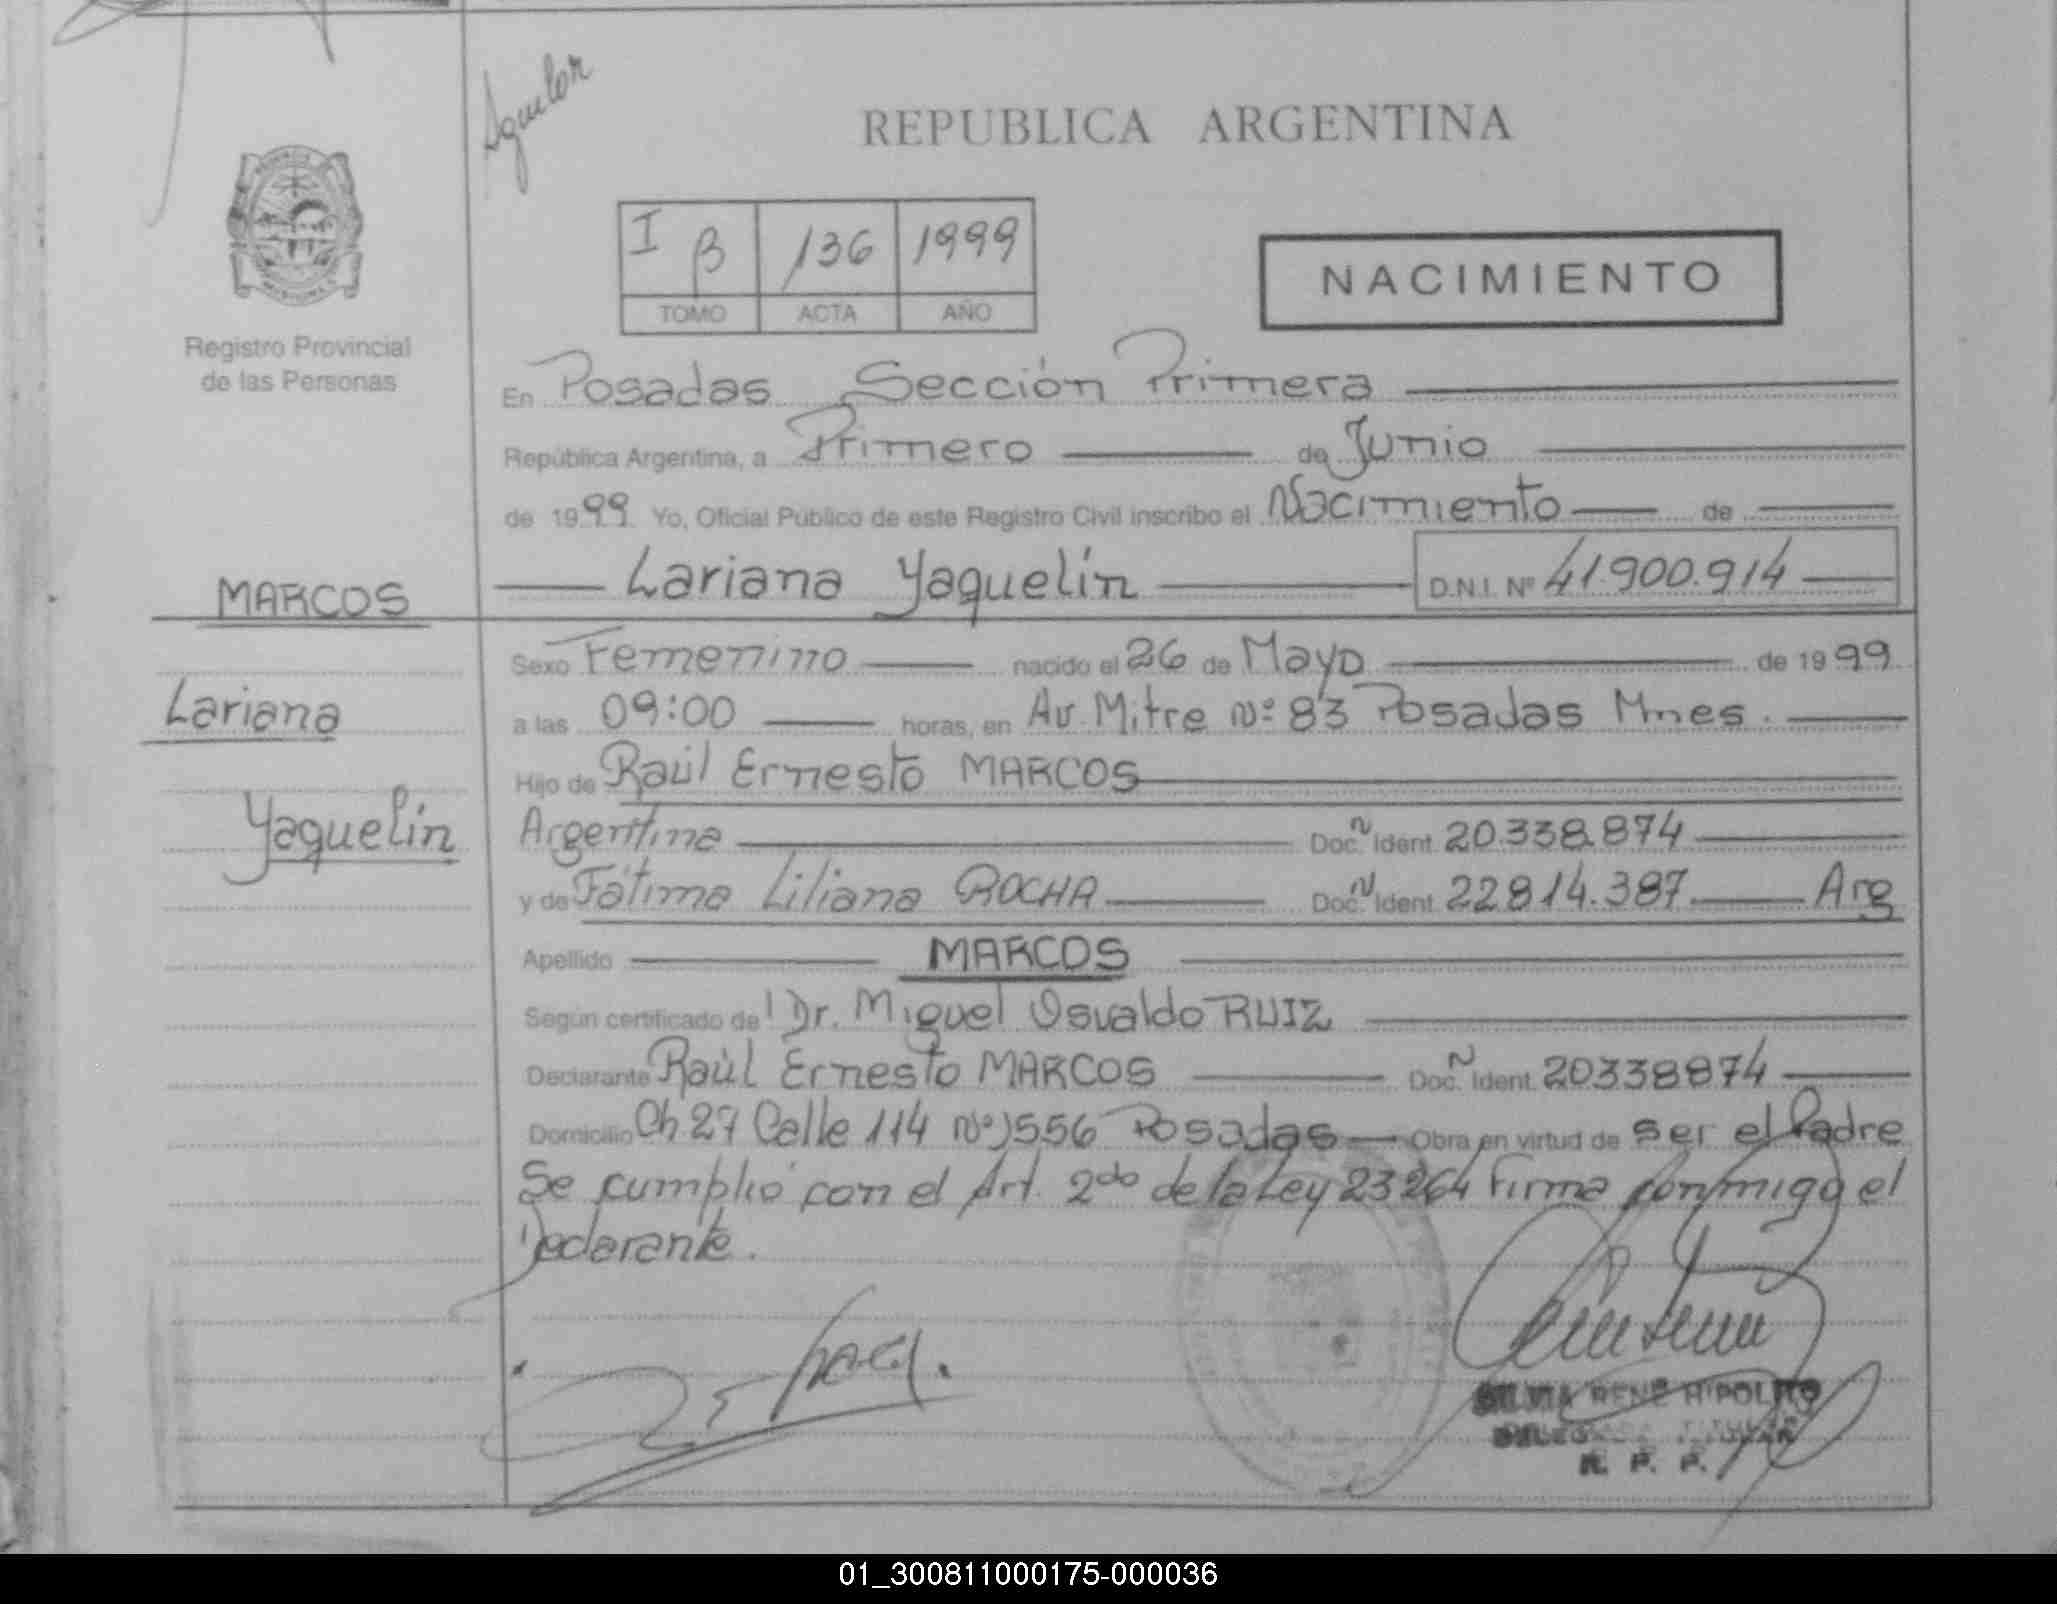 Aguilar
REPUBLICA ARGENTINA
I B 136 1999
TOMO ACTA AÑO
NACIMIENTO
Registro Provincial
de las Personas
En Posadas Sección Primera
República Argentina, a Primero de Junio
de 1999 Yo, Oficial Público de este Registro Civil inscribo el Nacimiento de
Lariana Yaquelín D.N.I. Nº 41.900.914
MARCOS
Lariana
Yaquelín
Sexo Femenino nacido el 26 de Mayo de 1999
a las 09:00 horas, en Av. Mitre Nº 83 Posadas Mnes.
Hijo de Raúl Ernesto MARCOS
Argentina Doc. N Ident. 20.338.874
y de Fátima Liliana ROCHA Doc. N Ident. 22.814.387 Arg
Apellido MARCOS
Según certificado del Dr. Miguel Osvaldo RUIZ
Declarante Raúl Ernesto MARCOS Doc. N Ident. 20338874
Domicilio Ch. 27 Calle 114 Nº 1556 Posadas Obra en virtud de ser el Padre
Se cumplió con el Art. 2do de la Ley 23264 Firma conmigo el
Declarante.
SILVIA RENE HIPOLITO
R. P. P.
01_300811000175-000036